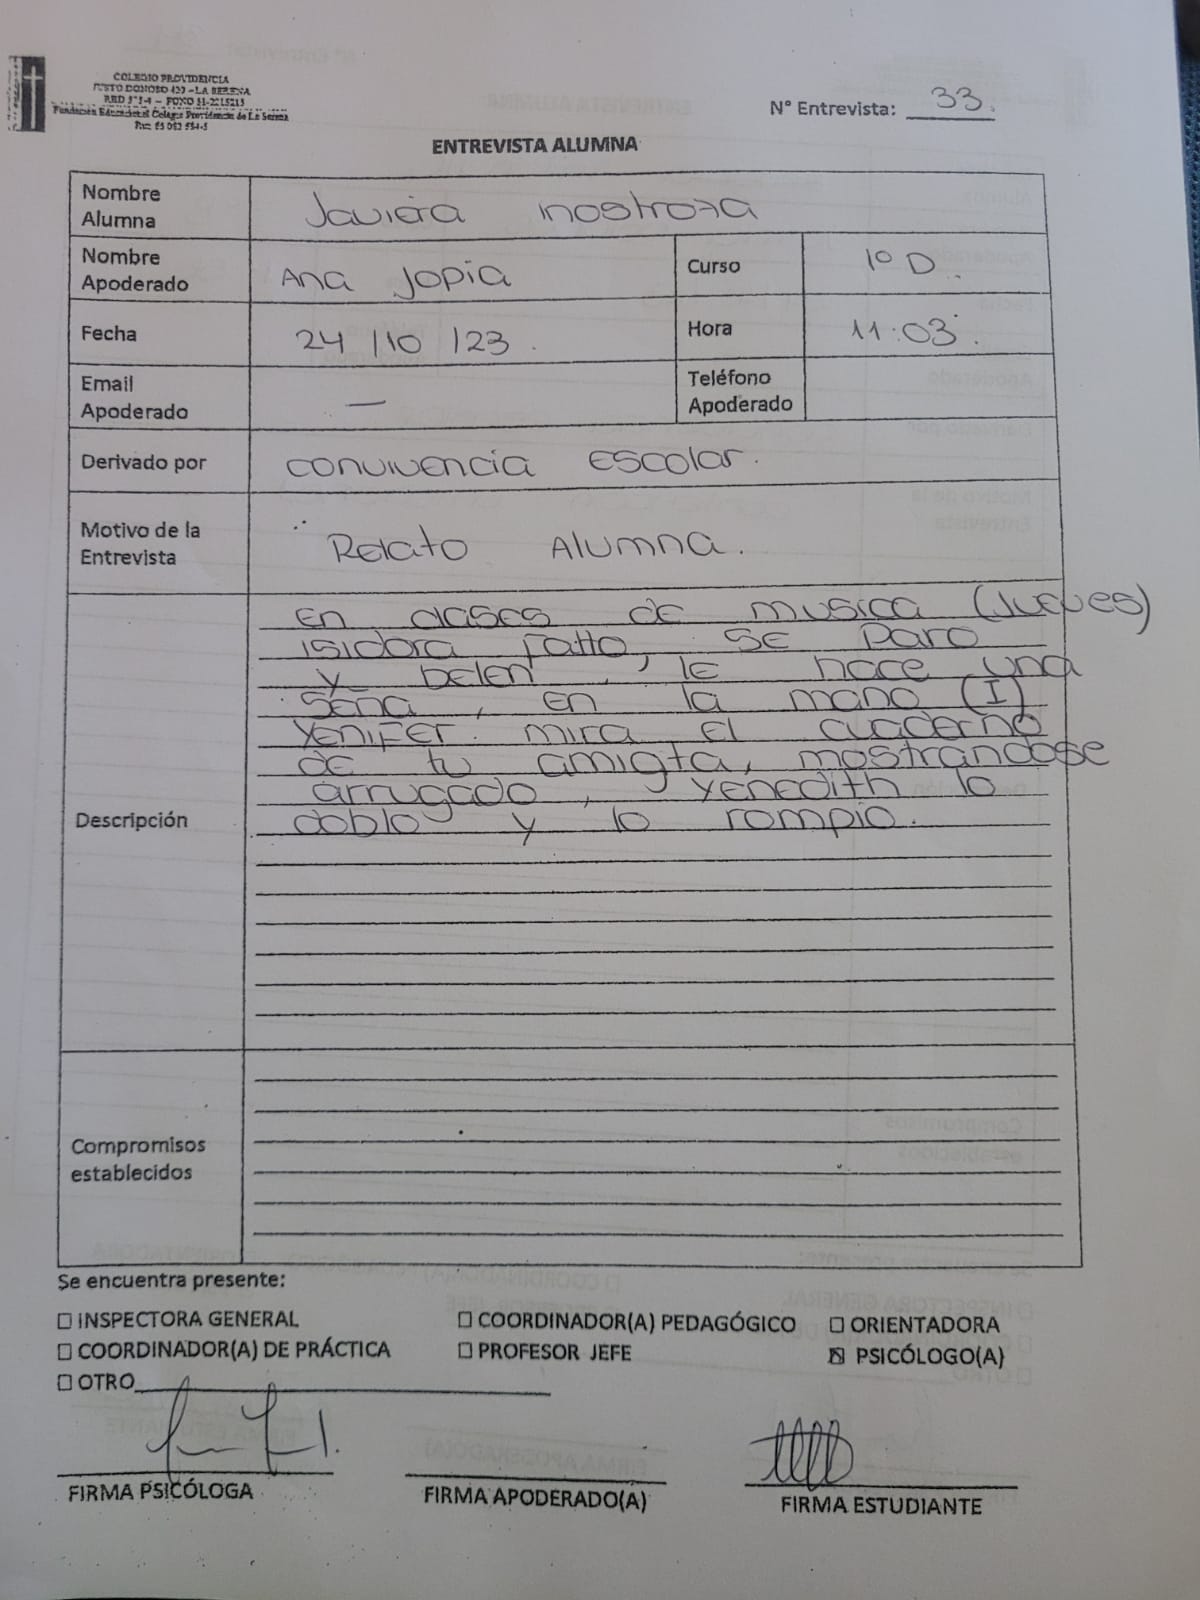 COLEGIO PROVIDENCIA
JUSTO DONOSO 420 – LA SERENA
Fundación Educacional Colegio Providencia de La Serena
N° Entrevista: 33.
ENTREVISTA ALUMNA
Nombre Alumna Javiera inostroza
Nombre Apoderado Ana Jopia
Curso 1° D.
Fecha 24/10/23.
Hora 11:03.
Email Apoderado —
Teléfono Apoderado
Derivado por convivencia Escolar.
Motivo de la Entrevista Relato Alumna.
Descripción
En clases de musica (Jueves)
isidora falto, se paro
y belen, le hace una
seña, en la mano (I)
Yenifer mira el cuaderno
de tu amigta, mostrandose
arrugado, Yenedith lo
doblo y lo rompio.
Compromisos establecidos
Se encuentra presente:
☐ INSPECTORA GENERAL ☐ COORDINADOR(A) PEDAGÓGICO ☐ ORIENTADORA
☐ COORDINADOR(A) DE PRÁCTICA ☐ PROFESOR JEFE ☒ PSICÓLOGO(A)
☐ OTRO
FIRMA PSICÓLOGA FIRMA APODERADO(A) FIRMA ESTUDIANTE